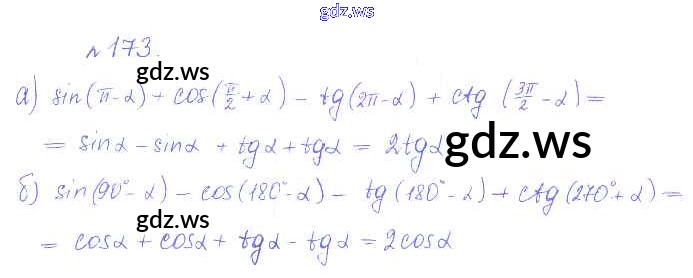 gdz.ws
№ 173.
gdz.ws
а) sin(π-α) + cos(π/2 + α) - tg(2π-α) + ctg(3π/2 - α) =
= sinα - sinα + tgα + tgα = 2tgα
gdz.ws
б) sin(90°-α) - cos(180°-α) - tg(180°-α) + ctg(270°+α) =
gdz.ws
= cosα + cosα + tgα - tgα = 2cosα
gdz.ws